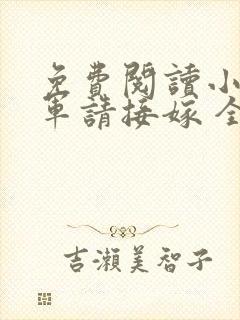 免費閱讀小
軍請接嫁全
吉瀨美智子